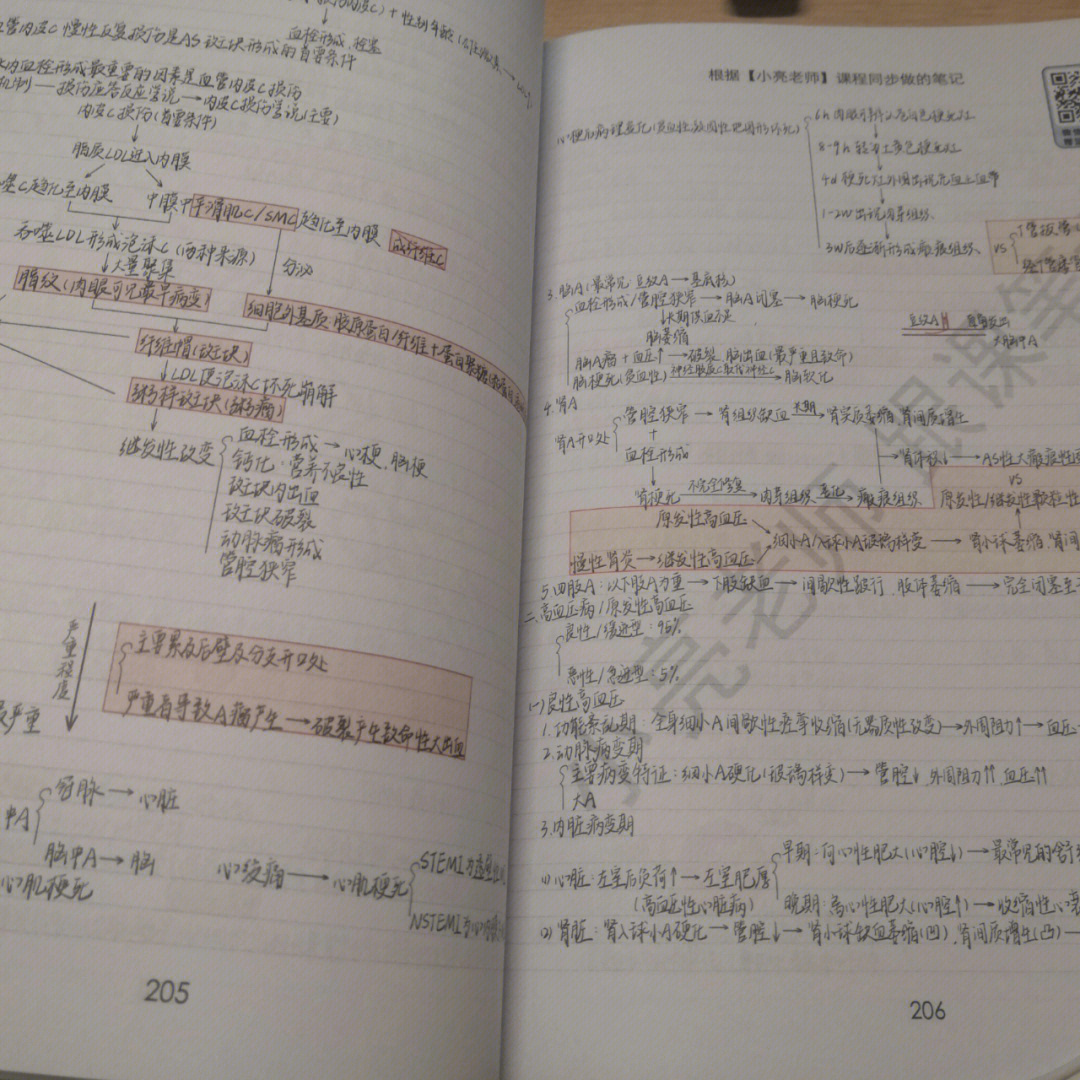 血管内皮C慢性反复损伤是AS斑块形成的首要条件
血栓形成、栓塞
内血栓形成最重要的因素是血管内皮C损伤
机制——损伤应答反应学说→内皮C损伤学说(主要)
内皮C损伤(首要条件)
脂质LDL进入内膜
噬C趋化至内膜
中膜中平滑肌C/SMC趋化至内膜
成纤维C
吞噬LDL形成泡沫C(两种来源)
大量聚集
分泌
脂纹(肉眼可见最早病变)
细胞外基质:胶原蛋白/纤维+蛋白聚糖
纤维帽(斑块)
LDL使泡沫C坏死崩解
粥样斑块(粥瘤)
继发性改变
血栓形成→心梗、脑梗
钙化:营养不良性
斑块内出血
斑块破裂
动脉瘤形成
管腔狭窄
严重程度
主要累及后壁及分支开口处
严重者导致A瘤产生→破裂产生致命性大出血
最严重
中A
冠脉→心脏
脑中A→脑
心肌梗死
心绞痛→心肌梗死
STEMI为透壁性
NSTEMI为心内膜
205
根据【小亮老师】课程同步做的笔记
心梗的病理变化(贫血性、凝固性、地图形坏死)
6h肉眼可辨认苍白色梗死灶
8-9h转为土黄色梗死灶
4d梗死灶外周出现充血出血带
1-2W出现肉芽组织
3W后逐渐形成瘢痕组织
VS
3.脑A(最常见 豆纹A→基底核)
血栓形成/管腔狭窄→脑A闭塞→脑梗死
长期供血不足
脑萎缩
豆纹A
大脑中A
脑A瘤+血压↑→破裂、脑出血(最严重且致命)
脑梗死(贫血性)神经胶质C取代神经C→脑软化
4.肾A
肾A开口处
管腔狭窄→肾组织缺血 长期→肾实质萎缩、肾间质增生
+
血栓形成
肾体积↓→AS性大瘢痕性固
VS
肾梗死 不完全修复→肉芽组织 老化→瘢痕组织
原发性/继发性颗粒性
原发性高血压
慢性肾炎→继发性高血压
细小A/入球小A玻璃样变→肾小球萎缩、肾间
5.四肢A:以下肢A为重→下肢缺血→间歇性跛行、肢体萎缩→完全闭塞至
二、高血压病/原发性高血压
良性/缓进型:95%
恶性/急进型:5%
(一)良性高血压
1.功能紊乱期:全身细小A间歇性痉挛收缩(无器质性改变)→外周阻力↑→血压
2.动脉病变期
主要病变特征:细小A硬化(玻璃样变)→管腔↓、外周阻力↑↑、血压↑↑
大A
3.内脏病变期
早期:向心性肥大(心腔↓)→最常见的舒
(1)心脏:左室后负荷↑→左室肥厚
(高血压性心脏病)
晚期:离心性肥大(心腔↑)→收缩性心衰
(2)肾脏:肾入球小A硬化→管腔↓→肾小球缺血萎缩(凹)、肾间质增生(凸)
206
小亮老师 跟课笔